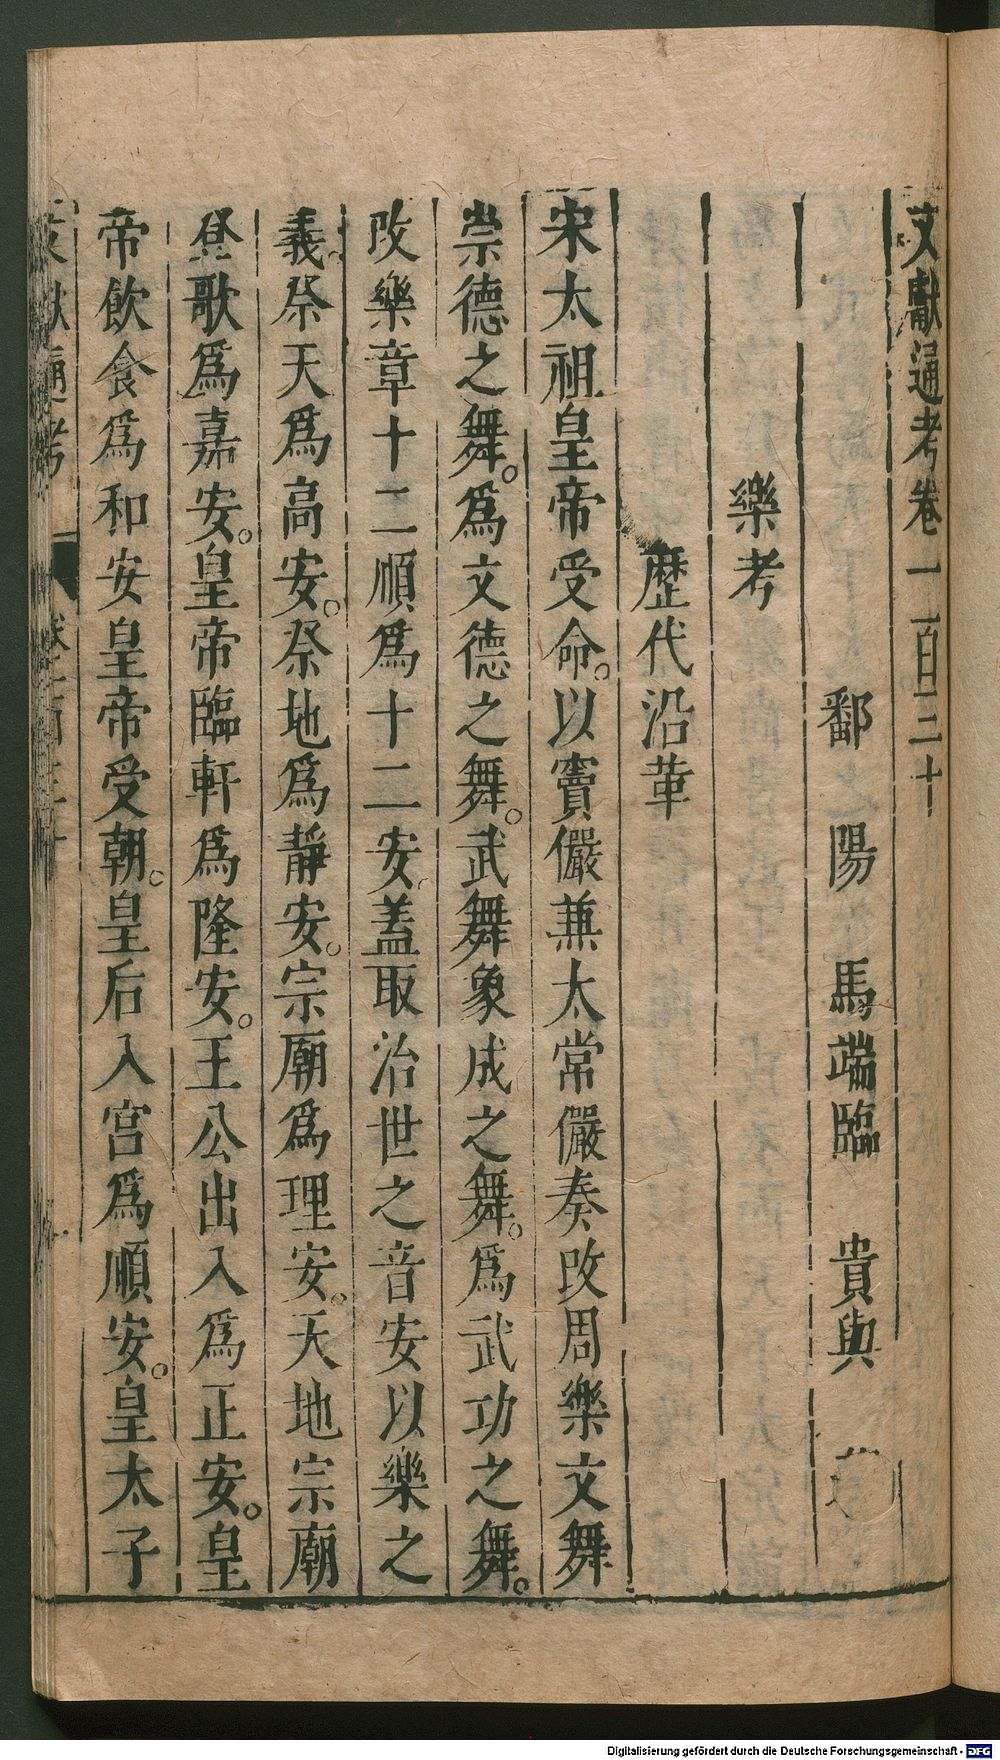 文獻通考卷一百三十
鄱陽馬端臨貴與
樂考
歷代沿革
宋太祖皇帝受命。以竇儼兼太常儼奏改周樂文舞
崇德之舞。為文德之舞。武舞象成之舞。為武功之舞。
改樂章十二順為十二安蓋取治世之音安以樂之
義。祭天為高安。祭地為靜安。宗廟為理安。天地宗廟
登歌為嘉安。皇帝臨軒為隆安。王公出入為正安。皇
帝飲食為和安皇帝受朝。皇后入宮為順安。皇太子
Digitalisierung gefördert durch die Deutsche Forschungsgemeinschaft - DFG